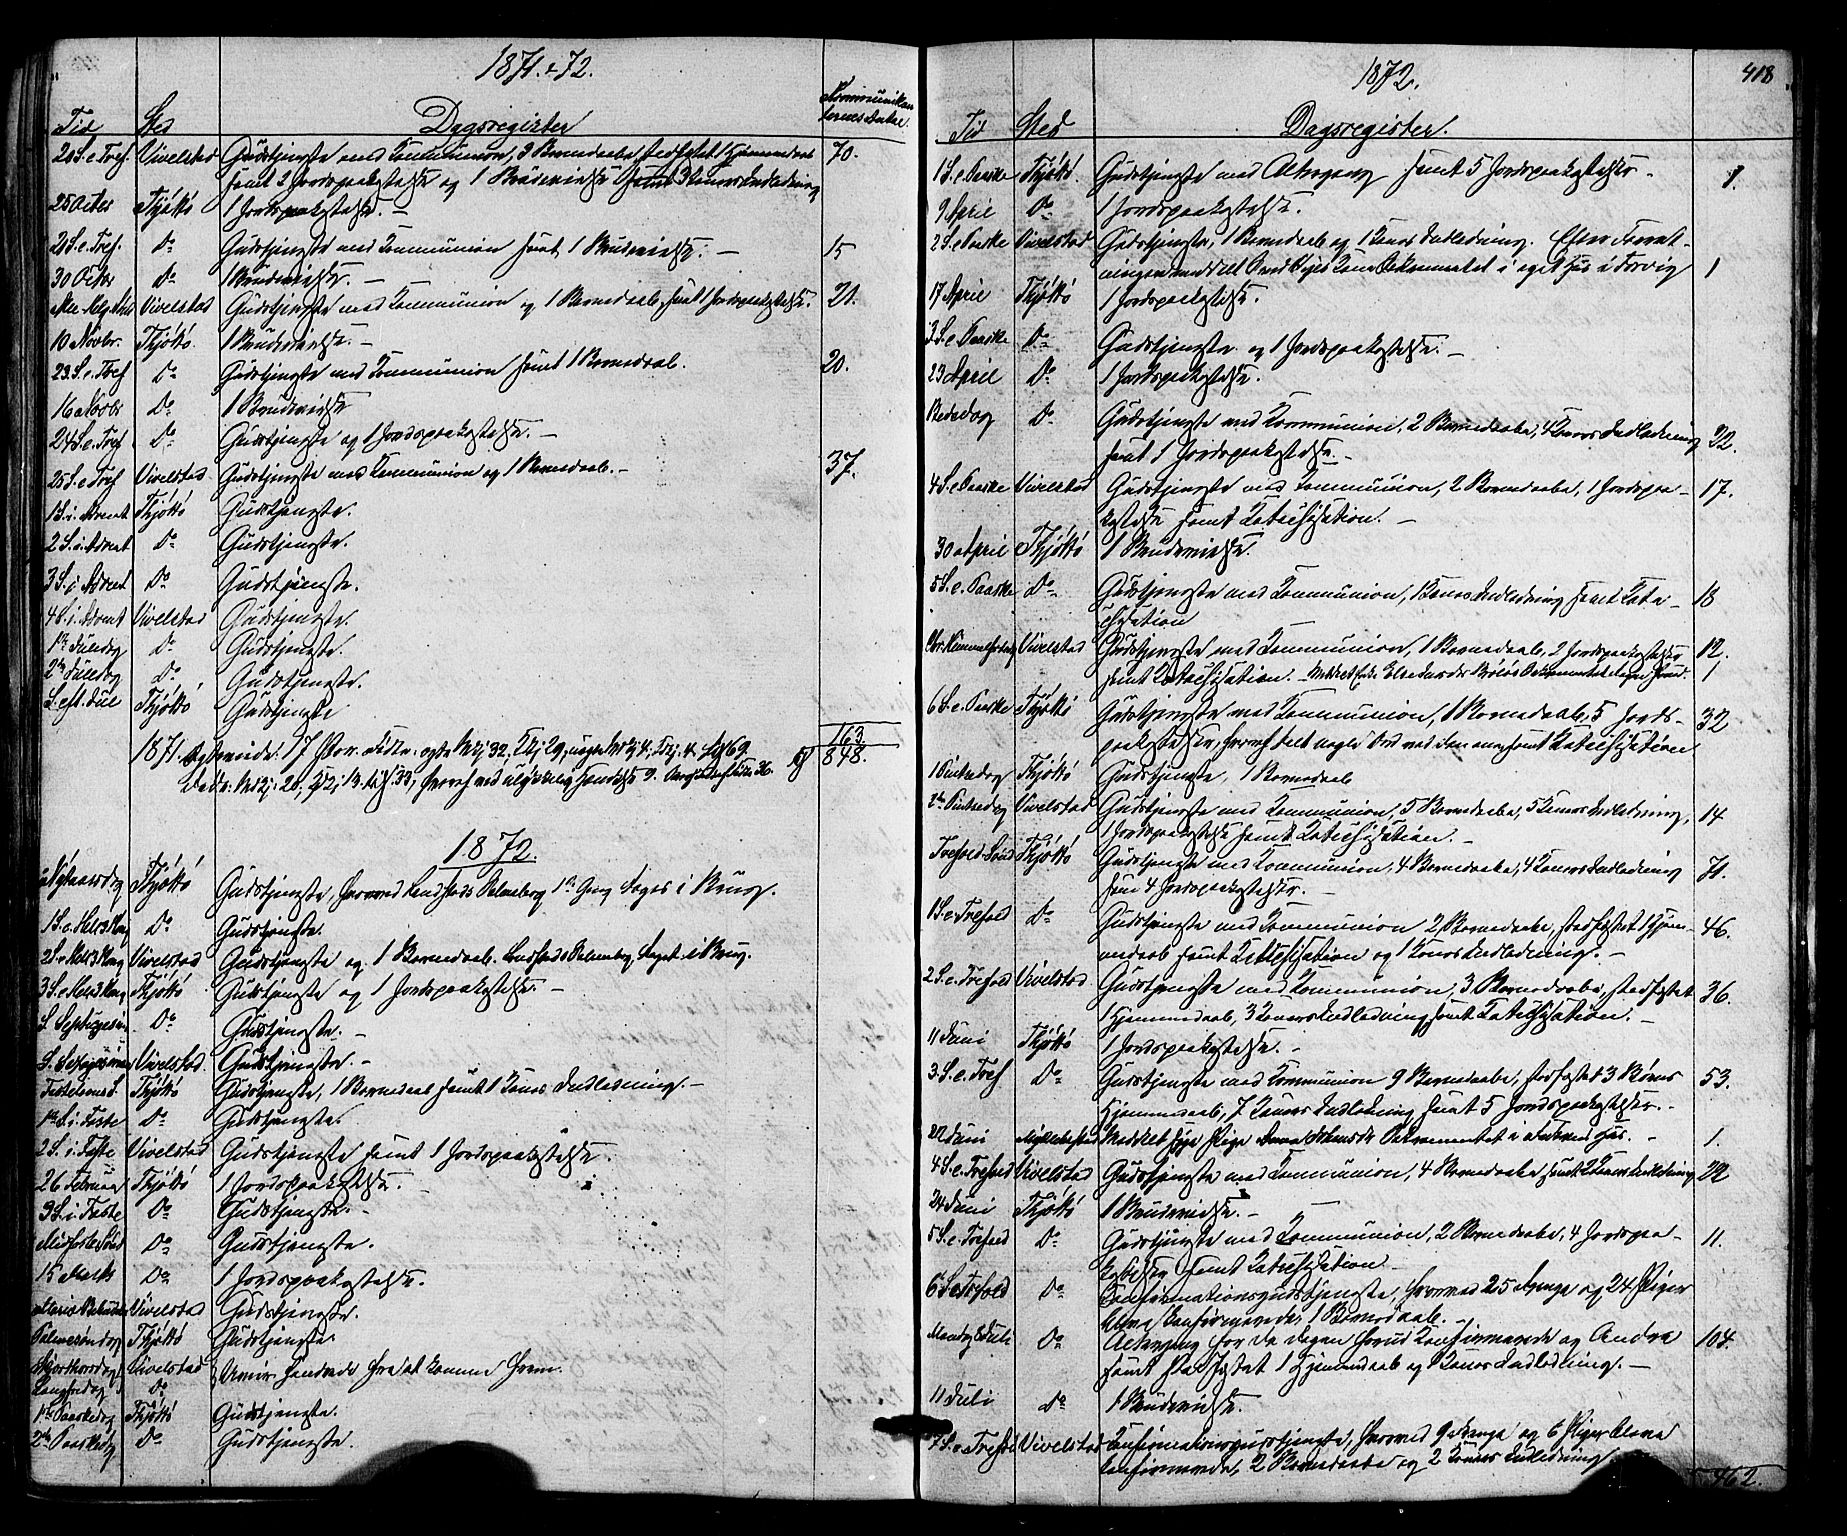 1871 & 72.
Tid Sted Dagsregister Kommunikan
ternes Antal.
20 S. e. Tref. Vivelstad Gudstjeneste med Communion, 3 Barnedaab, stadfæstet 1 Hjemmedaab 70.
samt 2 Jordspaakastelse og 1 Brudevielse samt 3 Koners Indledning
25 Octbr Thjøttø 1 Jordspaakastelse. –
21 S. e. Tref. Do Gudstjeneste med Communion samt 1 Brudevielse. – 15
30 Octbr Do 1 Brudevielse. –
Alle Helg. Vivelstad Gudstjeneste med Communion og 1 Barnedaab, samt 1 Jordspaakastelse. 21.
10 Novbr. Thjøttø. 1 Brudevielse. –
23. S. e. Tref Do Gudstjeneste med Communion samt 1 Barnedaab. 20.
16 Novbr Do 1 Brudevielse
24 S. e. Tref Do Gudstjeneste og 1 Jordspaakastelse. –
25 S. e Tref Vivelstad Gudstjeneste med Communion og 1 Barnedaab. – 37.
1 S. i. Advent Thjøttø Gudstjeneste.
2 S. i. Advent Do Gudstjeneste.
3 S. i. Advent Do Gudstjeneste.
4 S. i. Advent Vivelstad Gudstjeneste.
1ste Juledag Do Gudstjeneste.
2den Juledag Do Gudstjeneste.
S. eft. Jul Thjøttø Gudstjeneste
163.
1871. 848.
1872.
Nytaarsdag Thjøttø Gudstjeneste, hvorved Landstads Psalmebog 1ste Gang toges i Brug.
1 S. e. Hel. 3 Kong Do Gudstjeneste.
2 S. e Hel. 3 Kong Vivelstad Gudstjeneste og 1 Barnedaab. Landstads Psalmebog taget i Brug.
3 S. e Hel. 3 Kong Thjøttø Gudstjeneste og 1 Jordspaakastelse. –
S. Septuagesima Do Gudstjeneste. –
S. Sexagesima Vivelstad. Gudstjeneste. –
Fastelavns S. Thjøttø Gudstjeneste, 1 Barnedaab samt 1 Kones Indledning. –
1ste S. i. Faste Do Gudstjeneste.
2 S. i. Faste Vivelstad Gudstjeneste samt 1 Jordspaakastelse.
26 Februar Thjøttø 1 Jordspaakastelse. –
3 S. i. Faste Do Gudstjeneste. –
Midfaste Sønd Do Gudstjeneste.
15 Marts Do 1 Jordspaakastelse.
Mariæ Bebudelse Vivelstad Gudstjeneste.
Palmesøndag Thjøttø Gudstjeneste.
Skjærthorsdag Vivelstad } Veiir hindrede fra at komme frem.
Langfredag Do
1ste Paaskedag Thjøttø Gudstjeneste.
2den Paaskedag Do Gudstjeneste.
1872. 418
Tid Sted Dagsregister.
1 S. e. Paaske Thjøttø. Gudstjeneste med Altergang samt 5 Jordspaakastelser – 1.
9 April Do 1 Jordspaakastelse.
2 S. e Paaske Vivelstad Gudstjeneste, 1 Barnedaab og 1 Kones Indledning. Efter Forret-
ningen meddelt Sacramentet i eget Hus i Forvig 1
17 April Thjøttø 1 Jordspaakastelse.
3 S. e Paaske Do Gudstjeneste og 1 Jordspaakastelse. –
23 April Do 1 Jordspaakastelse.
Bededag Do Gudstjeneste med Communion, 2 Barnedaabe, 4 Koners Indledning 22.
samt 1 Jordspaakastelse. –
4 S. e Paaske Vivelstad Gudstjeneste med Communion, 2 Barnedaabe, 1 Jordspaa- 17.
kastelse samt Katechisation. –
30 April Thjøttø 1 Brudevielse.
5 S. e. Paaske Do Gudstjeneste med Communion, 1 Kones Indledning samt Kate- 18
chisation
Chr. Himmelfartsdag Vivelstad Gudstjeneste med Communion, 1 Barnedaab, 2 Jordspaakastelser 12.
samt Katechisation. – 1
6 S. e. Paaske Thjøttø Gudstjeneste med Communion, 1 Barnedaab, 5 Jords- 32
paakastelser, samt Katechisation
1 Pintsedag Thjøttø Gudstjeneste, 1 Barnedaab
2den Pintsedag Vivelstad Gudstjeneste med Communion, 5 Barnedaabe, 5 Koners Indledning, 14
1 Jordspaakastelse samt Katechisation. –
Trefold. Sønd Thjøttø Gudstjeneste med Communion, 4 Barnedaabe, 4 Koners Indledning 71.
samt 4 Jordspaakastelser. –
1 S. e. Trefold Do Gudstjeneste med Communion 2 Barnedaabe, stadfæstet 1 Hjem- 46.
medaab samt Katechisation og 1 Kones Indledning. –
2 S. e. Trefold Vivelstad Gudstjeneste med Communion, 3 Barnedaabe, stadfæstet 36.
1 Hjemmedaab, 3 Koners Indledning samt Katechisation. –
11 Juni Thjøttø 1 Jordspaakastelse. –
3 S. e. Tref Do Gudstjeneste med Communion 9 Barnedaabe, stadfæstet 3 Børns 53.
Hjemmedaab, 7 Koners Indledning samt 5 Jordspaakastelser. –
Juni Meddelt syge Pige Sacramentet i Hus. – 1.
4 S. e. Trefold Vivelstad Gudstjeneste med Communion, 4 Barnedaabe samt 2 Koners Indledning 22
24 Juni Thjøttø 1 Brudevielse. –
5 S. e. Trefold Do Gudstjeneste med Communion, 2 Barnedaabe, 4 Jordspaa- 11.
kastelser samt Katechisation –
6 S. e Trefold Do Confirmationsgudstjeneste, hvorved 25 Drenge og 24 Piger
bleve confirmerede, 1 Barnedaab. –
Mandag 8 Juli Do Altergang for de Dagen forud Confirmerede og Andre 104.
samt stadfæstet 1 Hjemmedaab og 1 Kones Indledning. –
11 Juli Do 1 Brudevielse.
7 S. e. Trefold Vivelstad Confirmationsgudstjeneste, hvorved 9 Drenge og 6 Piger bleve
confirmerede, 2 Barnedaabe og 2 Koners Indledning
462.